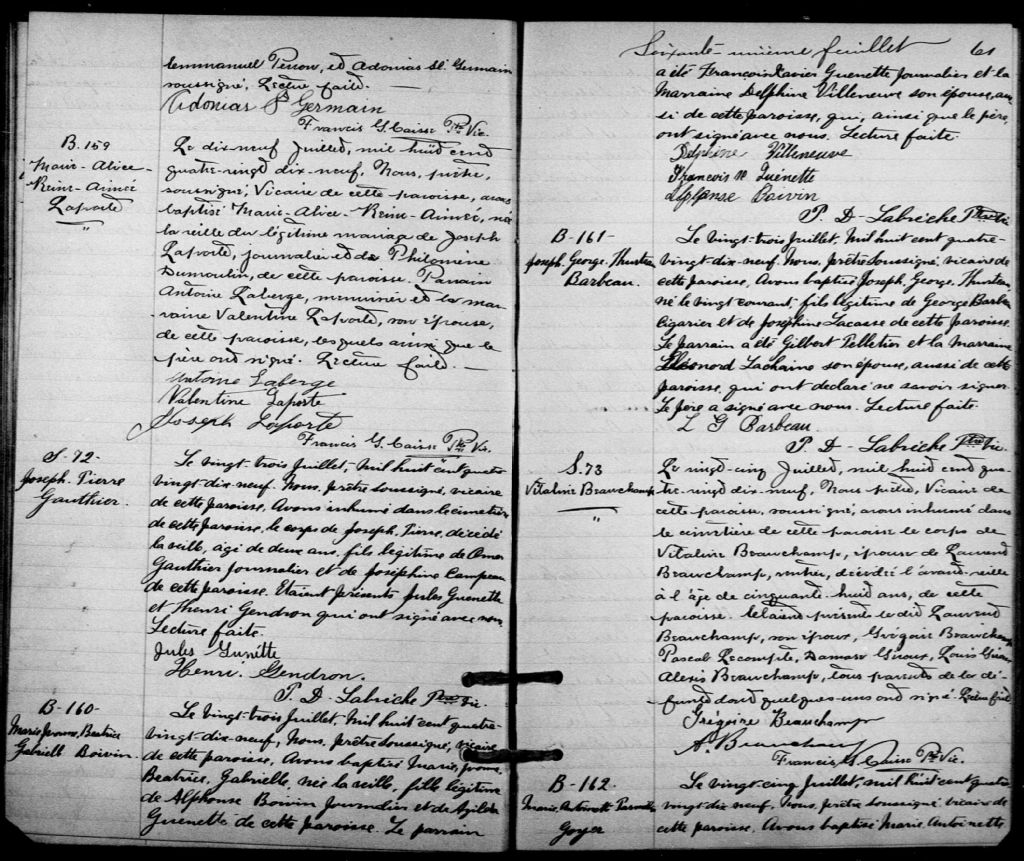 Emmanuel Perron, et Adonias St. Germain
soussigné. Lecture faite. —
Adonias St Germain
Francis G. Caisse Ptre Vic.
B. 159
Marie-Alice-
Reine-Aimée
Laporte
"
Le dix-neuf Juillet, mil huit cent
quatre-vingt dix-neuf. Nous, prêtre,
soussigné, Vicaire de cette paroisse, avons
baptisé Marie-Alice-Reine-Aimée, née
la veille du légitime mariage de Joseph
Laporte, journalier et de Philomène
Dumoulin, de cette paroisse. Parrain
Antoine Laberge, menuisier et la mar-
raine Valentine Laporte, son épouse,
de cette paroisse, lesquels ainsi que le
père ont signé. Lecture faite. —
Antoine Laberge
Valentine Laporte
Joseph Laporte
Francis G. Caisse Ptre Vic.
S. 72-
Joseph. Pierre
Gauthier.
Le vingt-trois Juillet, mil huit cent quatre
vingt-dix-neuf. Nous, prêtre soussigné, vicaire
de cette paroisse, Avons inhumé dans le cimetière
de cette paroisse, le corps de Joseph, Pierre, décédé
la veille, agé de deux ans, fils légitime de Omer
Gauthier Journalier et de Joséphine Campeau
de cette paroisse. Etaient présents Jules Guenette
et Henri Gendron qui ont signé avec nous
Lecture faite.
Jules Gunitte
Henri. Gendron.
P. D- Labrèche Ptre Vic.
B-160-
Marie, Yvonne, Beatrice
Gabrielle Boivin.
Le vingt-trois Juillet. Mil huit cent quatre-
vingt-dix-neuf, Nous, prêtre soussigné, vicaire
de cette paroisse, Avons baptisé Marie, Yvonne
Beatrice, Gabrielle, née la veille, fille légitime
de Alphonse Boivin Journalier et de
Guenette de cette paroisse. Le parrain
Soixante-unième feuillet 61
a été François Xavier Guenette Journalier et la
Marraine Delphine Villeneuve son épouse, aus
si de cette paroisse, qui, ainsi que le père,
ont signé avec nous. Lecture faite.
Delphine Villeneuve
Francois X Guénette
Alphonse Boivin
P. D- Labrèche Ptre Vic
B-161-
Joseph. George. Thurstin
Barbeau.
Le vingt-trois Juillet. Mil huit cent quatre-
vingt-dix-neuf. Nous, prêtre soussigné, vicaire de
cette paroisse, Avons baptisé Joseph, George, Thurstin,
né le vingt courant, fils légitime de George Barbeau
Cigarier et de Joséphine Lacasse de cette paroisse.
Le parrain a été Gilbert Pelletier et la Marraine
Eléonord Lachaine son épouse, aussi de cette
paroisse, qui ont declaré ne savoir signer
Le père a signé avec nous. Lecture faite.
L G Barbeau.
P. D- Labrèche Ptre Vic.
S. 73
Vitaline Beauchamp
"
Le vingt-cinq Juillet, mil huit cent qua-
tre-vingt dix-neuf, Nous prêtre, Vicaire de
cette paroisse, soussigné, avons inhumé dans
le cimetière de cette paroisse le corps de
Vitaline Beauchamp, épouse de Laurent
Beauchamp, rentier, décédée l'avant-veille
à l'âge de cinquante huit ans, de cette
paroisse. Etaient présents le dit Laurent
Beauchamp, son époux, Grégoire Beauchamp
Pascal Lecompte, Damase Giroux, Louis Giroux
Alexis Beauchamp, tous parents de la dé-
funte dont quelques-uns ont signé. Lecture faite
Grégoire Beauchamp
A. Beauchamp
Francis G. Caisse Ptre Vic.
B-162
Marie, Antoinette
Goyer
Le vingt-cinq Juillet, mil huit cent quatre
vingt-dix-neuf, Nous, prêtre soussigné vicaire de
cette paroisse, Avons baptisé Marie Antoinette